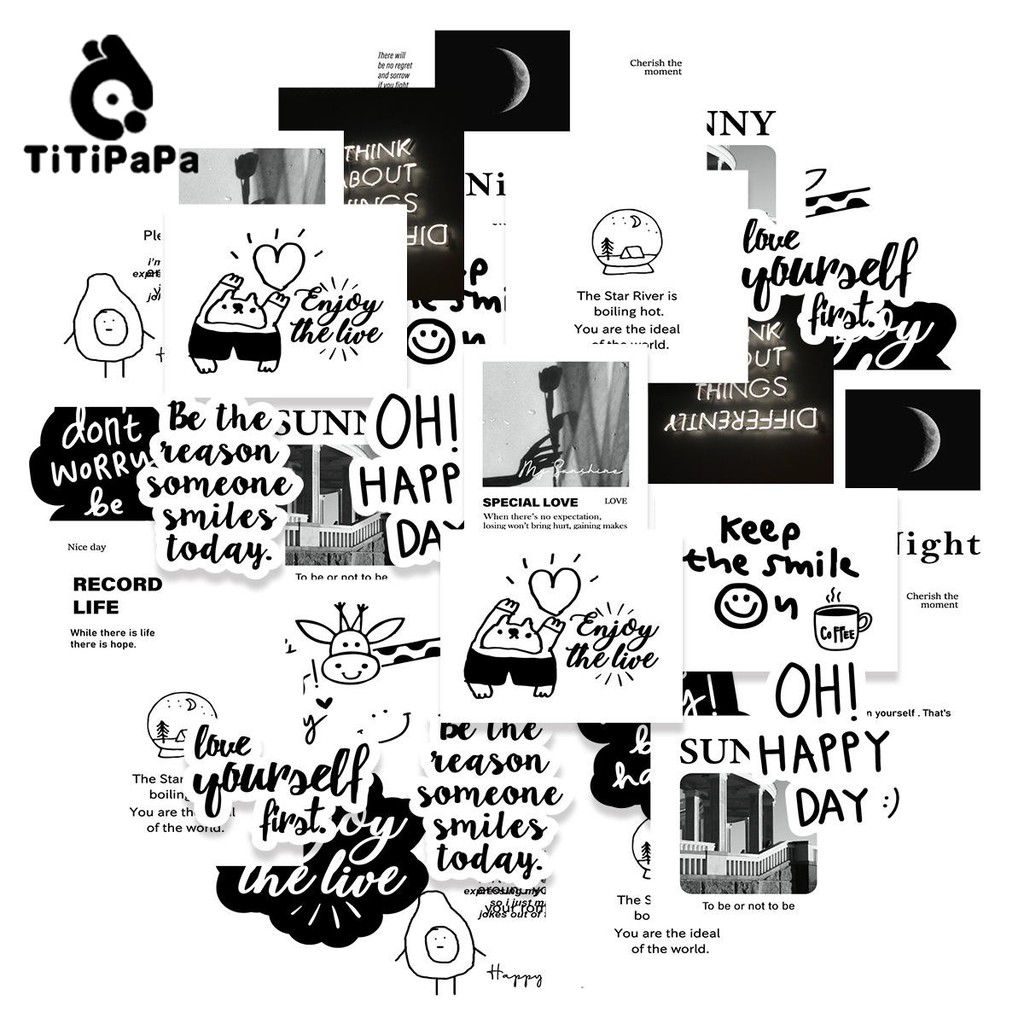 TiTiPaPa
There will
be no regret
and sorrow
if you fight
Cherish the
moment
THINK
ABOUT
THINGS
DIFFERENTLY
Enjoy
the live
The Star River is
boiling hot.
You are the ideal
of the world.
love
yourself
first.
THINGS
DIFFERENTLY
don't
WORRY
be
Be the
reason
someone
smiles
today.
SUNN
To be or not to be
OH!
HAPP
DA
My Sunshine
SPECIAL LOVE
LOVE
When there's no expectation,
losing won't bring hurt, gaining makes
Nice day
RECORD
LIFE
While there is life
there is hope.
keep
the smile
on
COFFEE
Night
Cherish the
moment
Enjoy
the live
OH!
HAPPY
DAY :)
n yourself . That's
SUN
To be or not to be
The Star
boilin
You are th
of the world.
love
yourself
first.
the live
Be the
reason
someone
smiles
today.
expressing my
so i just m
jokes out of
Happy
The S
bo
You are the ideal
of the world.